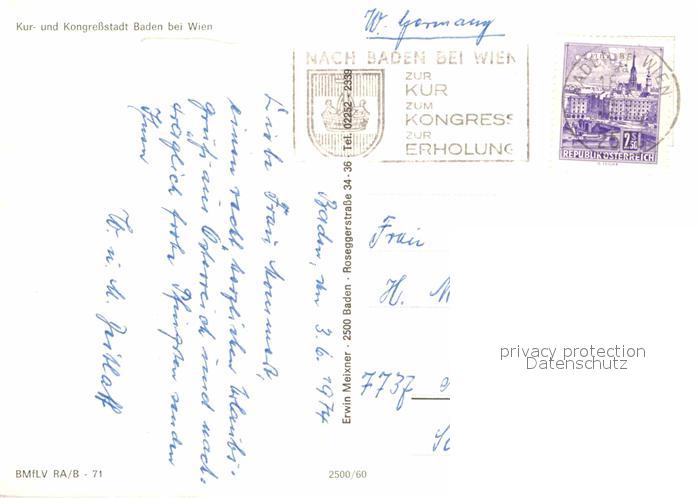 Kur- und Kongreßstadt Baden bei Wien
W. Germany
NACH BADEN BEI WIEN
ZUR
KUR
ZUM
KONGRESS
ZUR
ERHOLUNG
BADEN WIEN
2 S 50
REPUBLIK ÖSTERREICH
Baden, den 3.6.1974
Liebe Frau
einen recht herzlichen Urlaubs-
gruß aus Österreich und nach-
träglich frohe Pfingsten senden
Ihnen
W. u. M.
Erwin Meixner · 2500 Baden · Roseggerstraße 34-36 · Tel. 02252 - 2339
Frau
H. M
7737
privacy protection
Datenschutz
BMfLV RA/B - 71
2500/60